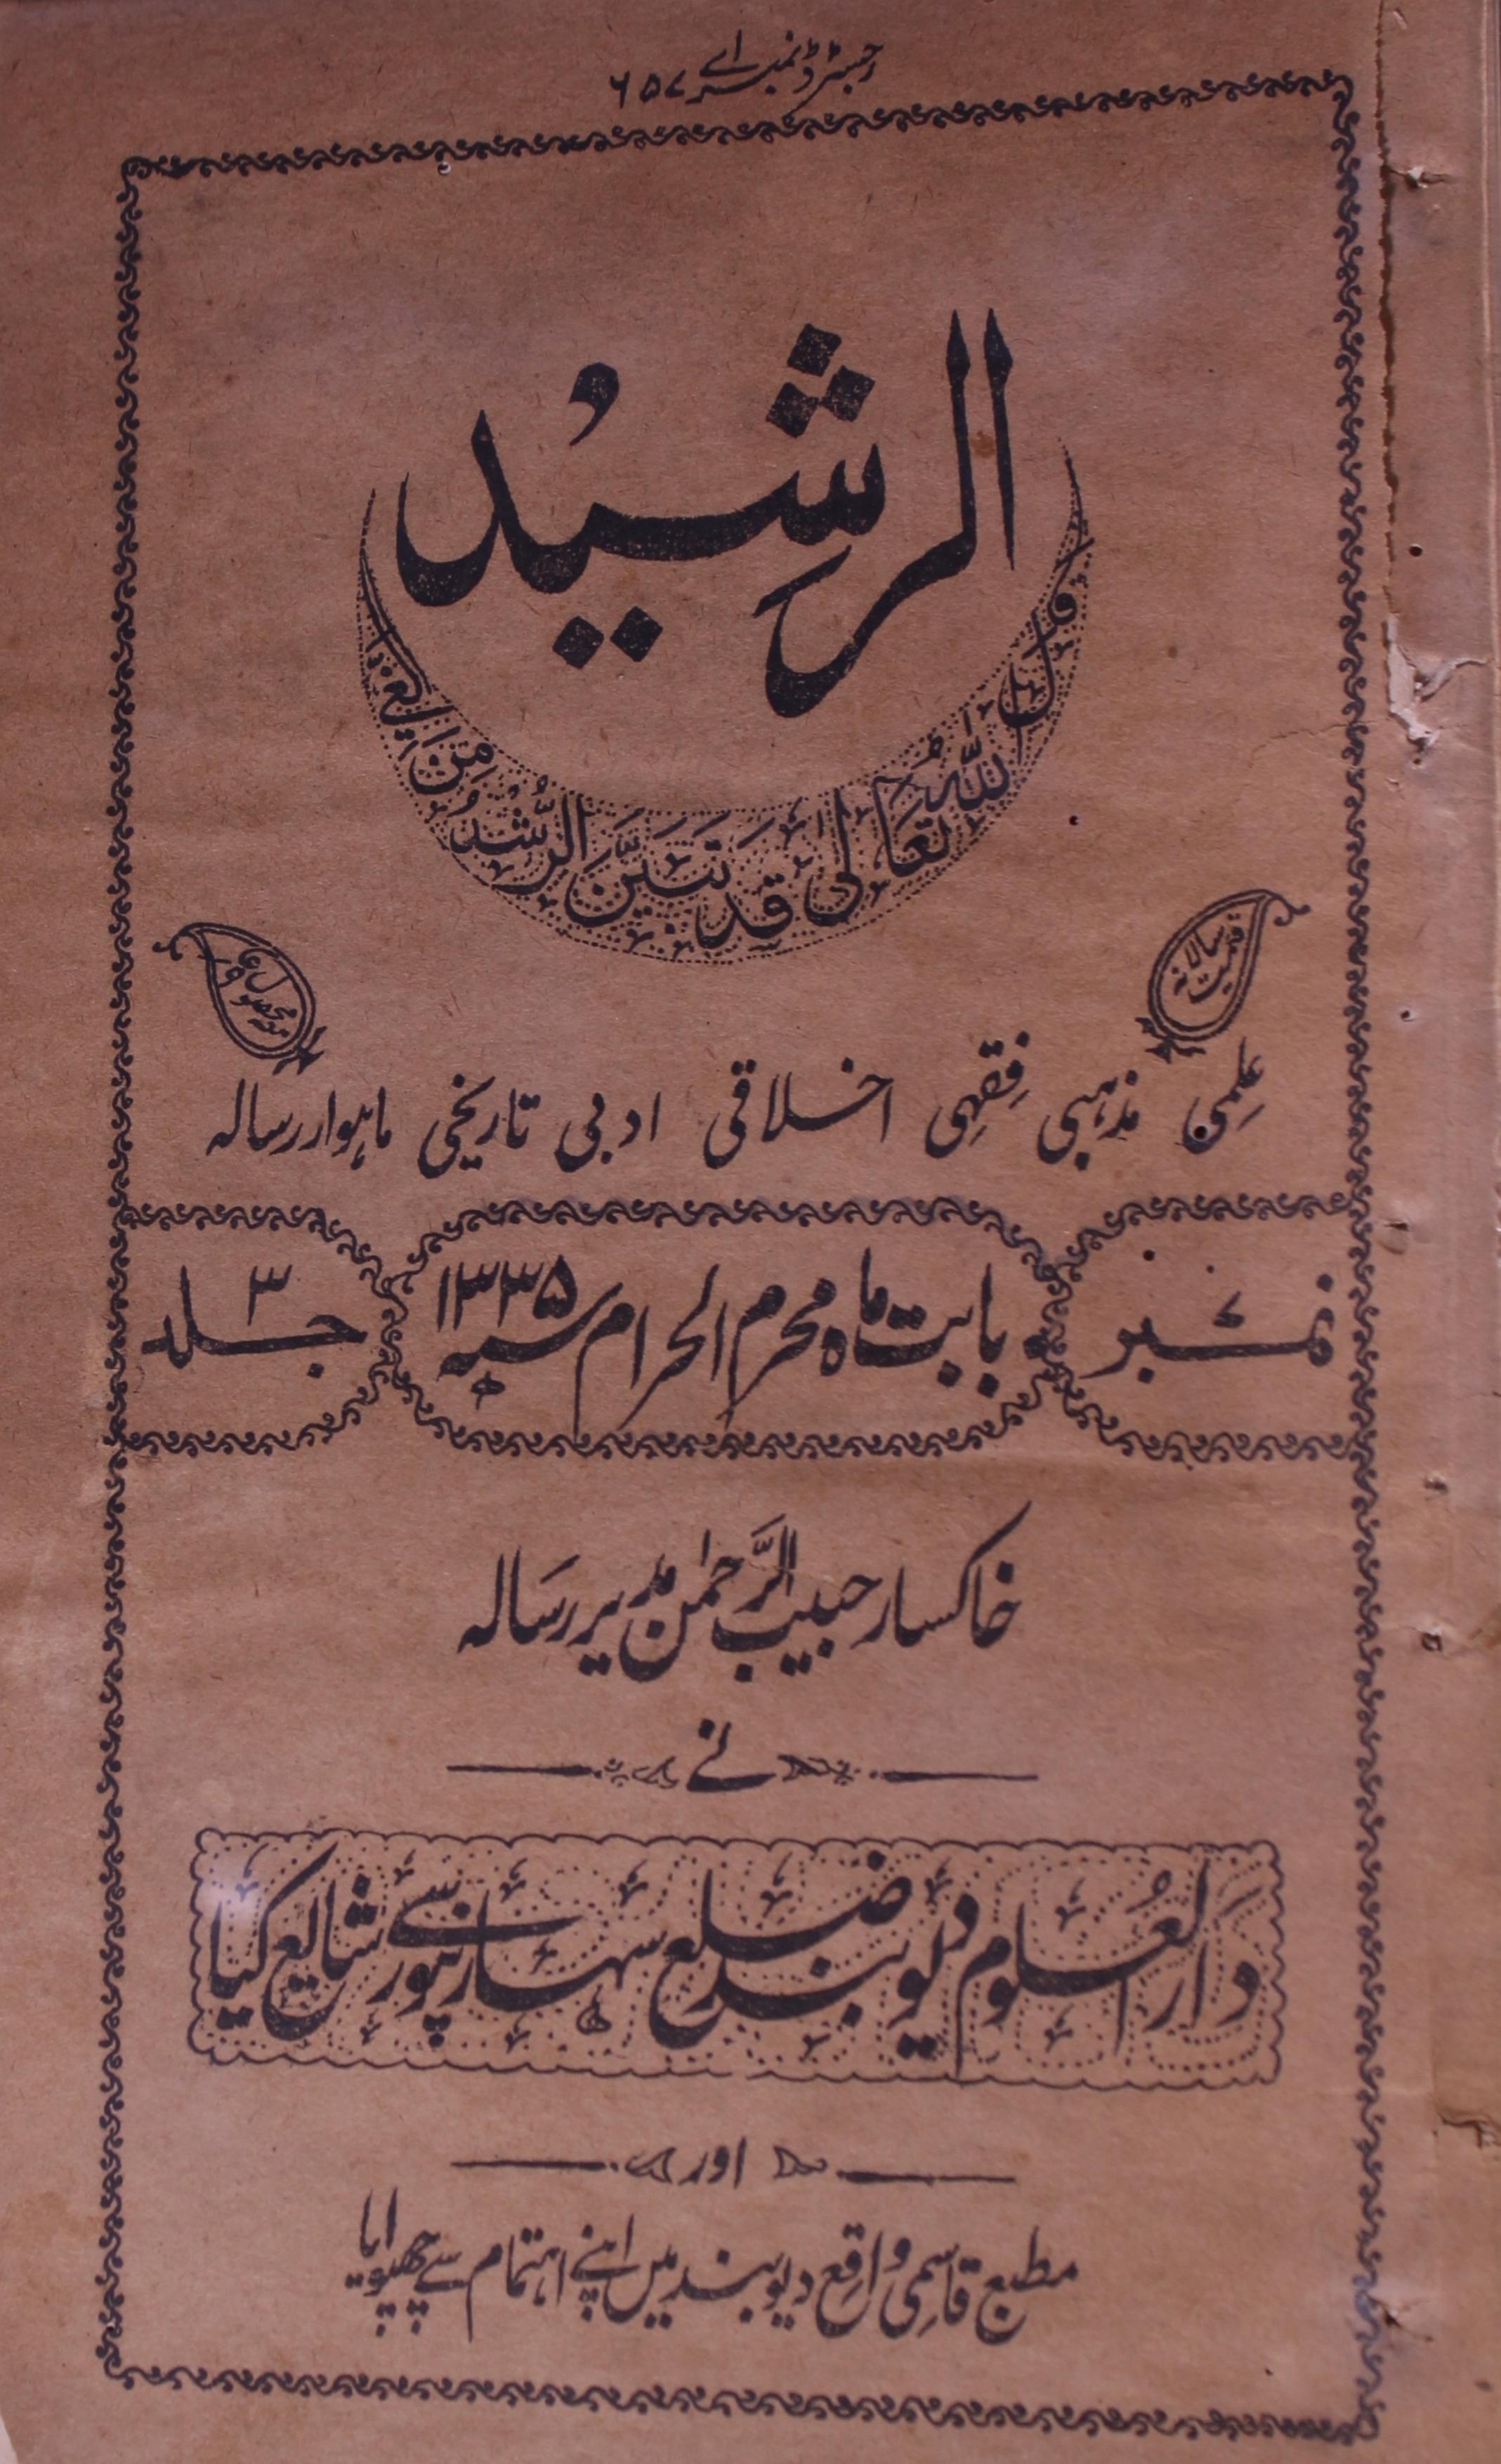 رجسٹرڈ نمبر اے ۶۵۷
الرشید
قال اللہ تعالی قد تبین الرشد من الغی
قیمت سالانہ
مع محصول
علمی مذہبی فقہی اخلاقی ادبی تاریخی ماہوار رسالہ
نمبر
بابت ماہ محرم الحرام سنہ ۱۳۳۵ ھ
جلد ۳
خاکسار حبیب الرحمٰن مدیر رسالہ
نے
دارالعلوم دیوبند ضلع سہارنپور سے شایع کیا
اور
مطبع قاسمی واقع دیوبند میں اپنے اہتمام سے چھپوایا